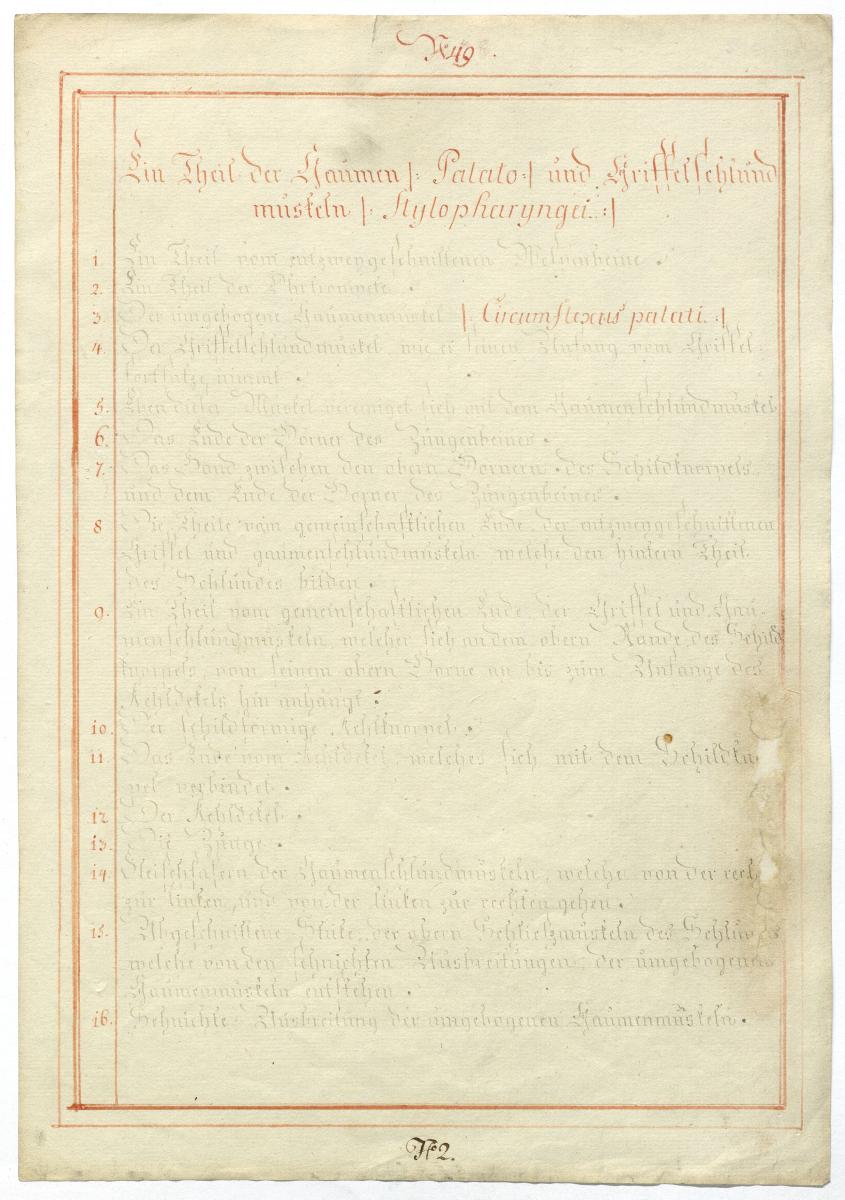 No 49.
Ein Theil der Gaumen |: Palato :| und Griffelschlund
muskeln |: Stylopharyngei. :|
1. Ein Theil vom entzweygeschnittenen Wespenbeine.
2. Ein Theil der Ohrtrompete.
3. Der umgebogene Gaumenmuskel |: Circumflexus palati. :|
4. Der Griffelschlundmuskel, wie er seinen Anfang vom Griffel-
fortsatze nimmt.
5. Eben dieser Muskel vereiniget sich mit dem Gaumenschlundmuskel
6. Das Ende der Hörner des Zungenbeines.
7. Das Band zwischen den obern Hörnern des Schildknorpels
und dem Ende der Hörner des Zungenbeines.
8 Die Theile vom gemeinschaftlichen Ende der entzweygeschnittenen
Griffel und gaumenschlundmuskeln, welche den hintern Theil
des Schlundes bilden.
9. Ein Theil vom gemeinschaftlichen Ende der Griffel und Gau-
menschlundmuskeln, welcher sich an dem obern Rande des Schild
knorpels, vom seinem obern Horne an bis zum Anfange des
Kehldekels hin anhängt:
10. Der schildförmige Kehlknorpel.
11. Das Ende vom Kehldekel, welches sich mit dem Schildkn
pel verbindet.
12 Der Kehldekel.
13. Die Zunge.
14. Fleischfasern der Gaumenschlundmuskeln, welche von der rech
zur linken, und von der linken zur rechten gehen.
15. Abgeschnittene Stüke der obern Schließmuskeln des Schlundes
welche von den sehnichten Ausbreitungen der umgebogenen
Gaumenmuskeln entstehen.
16. Sehnichte Ausbreitung der umgebogenen Gaumenmuskeln.
No 2.